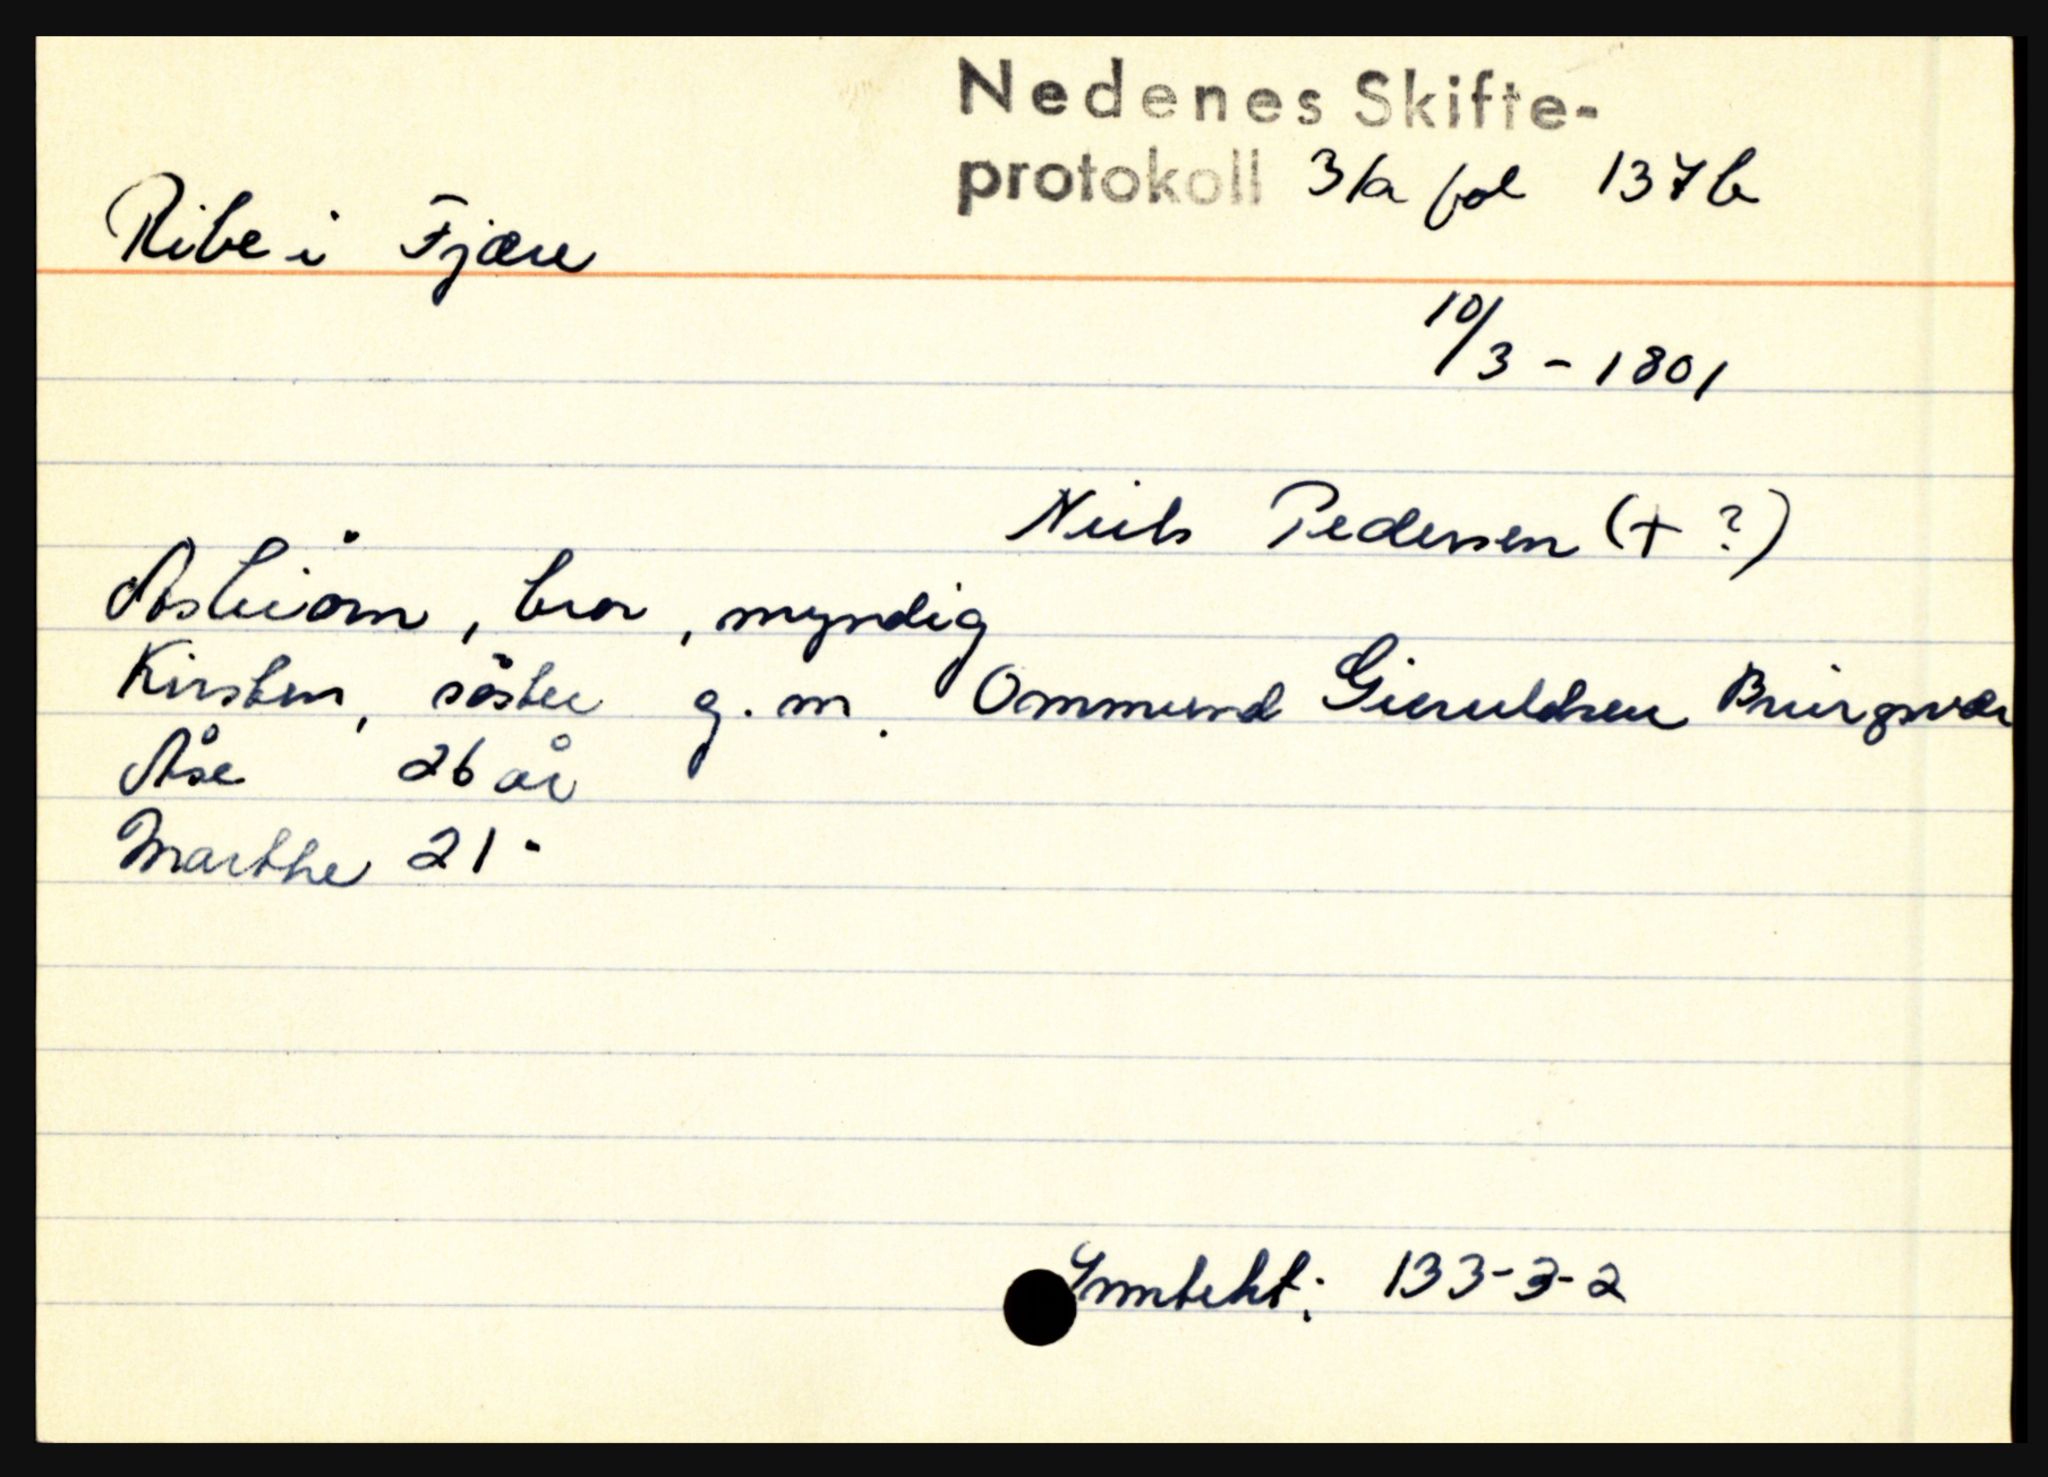 Nedenes Skifte-
protokoll 3/a fol 137b
Ribe i Fjære
10/3 - 1801
Niels Pedersen (+ ?)
Asbiörn, bror, myndig
Kirsten, söster g. m. Ommund Gieruldsen
Åse 26 år
Marthe 21 "
Inntekt: 133-3-2